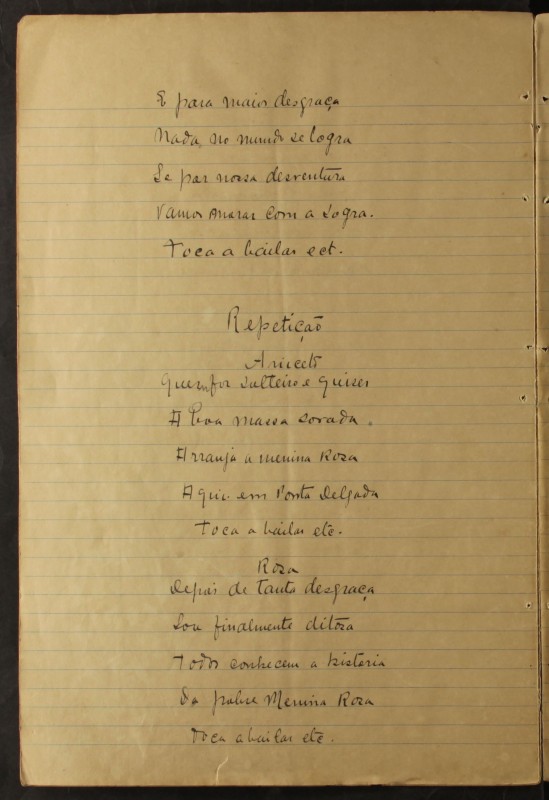 E para maior desgraça
Nada, no mundo se logra
Se por nossa desventura
Vamos Amar com a sogra.
Toca a bailar ect.
Repetição
Aniceto
Quem for solteiro e quiser
A boa massa sovada.
Arranja a menina Rosa
Aqui em Ponta Delgada
Toca a bailar etc.
Rosa
Depois de tanta desgraça
Sou finalmente ditosa
Todos conhecem a historia
Da pobre Menina Rosa
Toca a bailar etc.